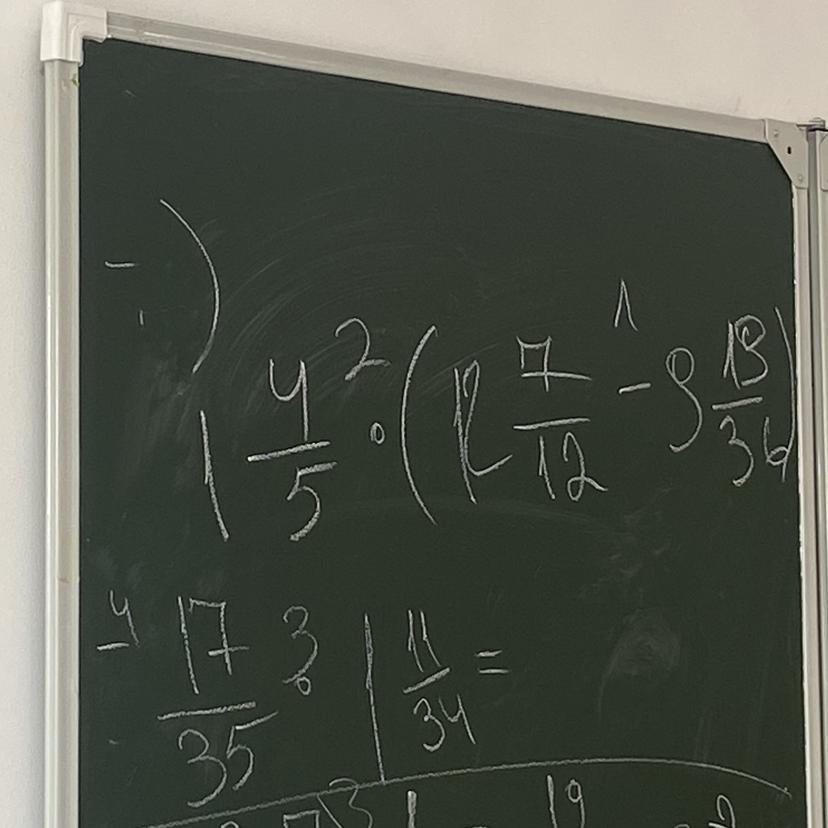 1 4/5 ·² (12 7/12 -¹ 9 13/36)
-⁴ 17/35 :³ 1 11/34 =
19